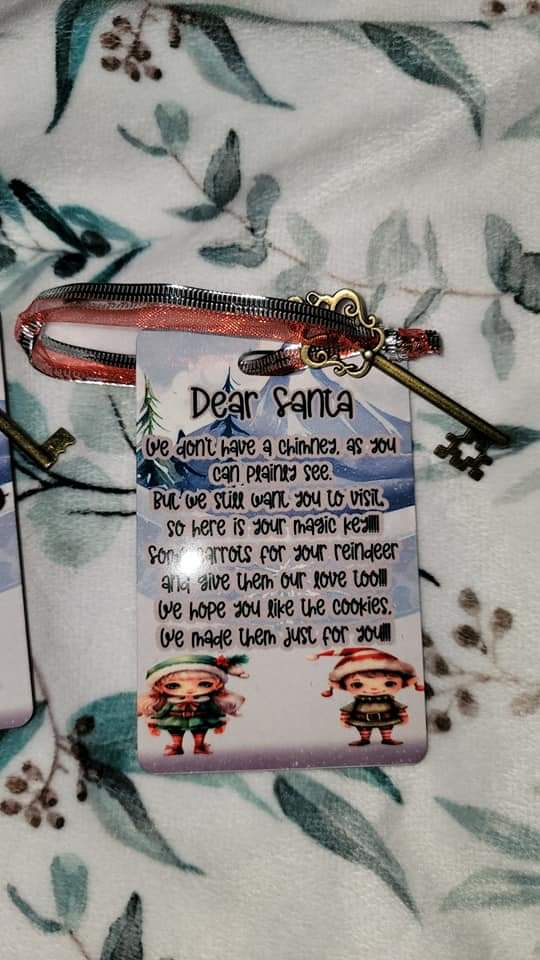 Dear Santa
We don't have a chimney, as you
can plainly see.
But we still want you to visit,
so here is your magic key!!!!
Some carrots for your reindeer
and give them our love too!!!
We hope you like the cookies.
We made them just for you!!!